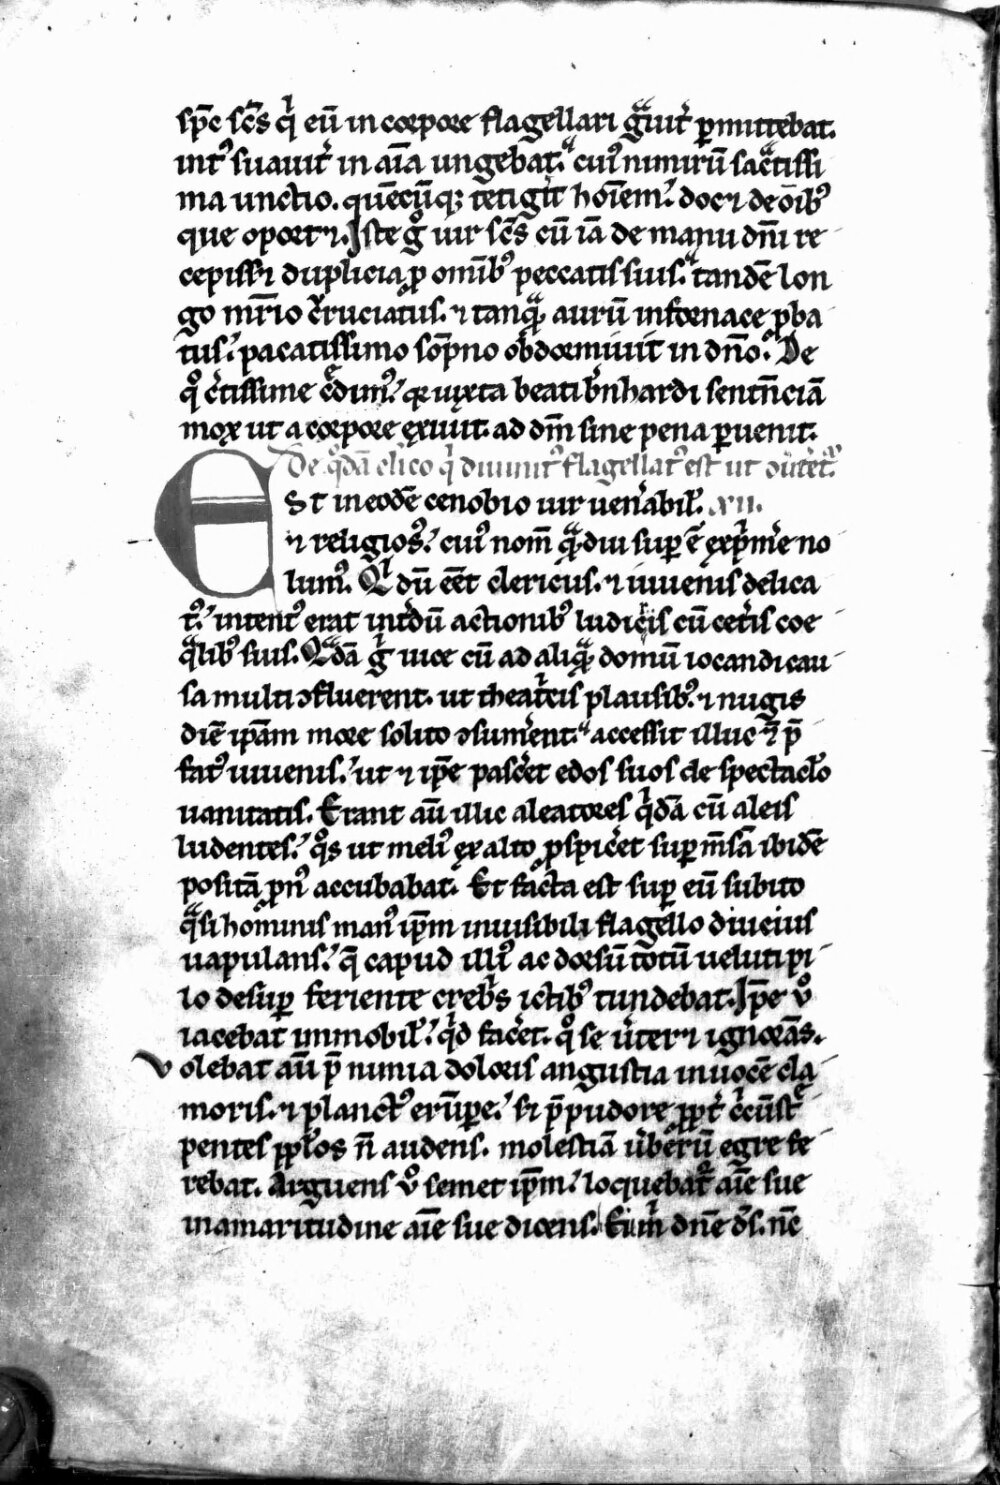 sp̄c sc̄s qͥ eū in corpore flagellari gͣuit̾ ꝑmittebat.
int᷒ suauit̾ in aīa ungebat. cui᷒ nimirū sacͣtissi
ma unctio. quēcūqꝫ tetigit hoīem. docꝫ de oīb᷒
que oportꝫ. Iste gͦ uir sc̄s cū iā de manu dn̄i re
cepissꝫ duplicia ꝓ omīb᷒ peccatis suis. tandē lon
go mr̄io cruciatus. ⁊ tanqͣ aurū in fornace ꝓba
tus. pacatissimo sop̄no obdormiuit in dn̄o. De
qͦ c̾tissime c̾dim᷒. qꝛ iuxta beati b̾nhardi sentn̄ciā
mox ut a corpore exiuit. ad dm̄ sine pena ꝑuenit.
De qͦdā cl̾ico qͥ diuinit᷒ flagellat᷒ est ut
Est in eodē cenobio uir uen̾abil̾. xii.
⁊ religios᷒. cui᷒ nom̄ qͣdiu suꝑ ē exp̾m̾e no
lum᷒. Qͥ dū eēt clericus. ⁊ iuuenis delica
t᷒. intent᷒ erat int̾dū actionib᷒ ludicͥis cū cet̾is coe
qͣlib᷒ suis. Qͣdā gͦ uice cū ad aliqͣ domū iocandi cau
sa multi ꝯfluerent. ut theatͥcis plausib᷒ ⁊ nugis
diē ip̄am more solito ꝯsum̾ent. accessit illuc ⁊ p̄
fat᷒ iuuenis. ut ⁊ ip̄e pasc̾et oc̾los suos de spectacl̾o
uanitatis. Erant aū illic aleatores qͥdā cū aleis
ludentes. qͦs ut meli᷒ ex alto ꝓspic̾et suꝑ m̄sā ibidē
positā pn᷒ accubabat. Et facta est suꝑ eū subito
qͣsi hominis man᷒ ip̄m inuisibili flagello diucius
uapulans. q̄ capud illi᷒ ac dorsū totū ueluti pi
lo desuꝑ feriente creb̾s ictib᷒ tundebat. Ip̄e v̾o
iacebat immobil̾. qͥd fac̾et. qͦ se u̾terꝫ ignorās.
Volebat aū p̄ nimia doloris angustia in uocē cla
moris ⁊ planct᷒ erūꝑe. sꝫ p̄ pudore ꝓpt̾ cͥcūstͣ
pentes ppl̾os n̄ audens. molestiā u̾berū egre fe
rebat. Arguens v̾o semet ip̄m. loquebat̾ aīe sue
in amaritudine aīe sue dicens. dn̄e d̾s. nē